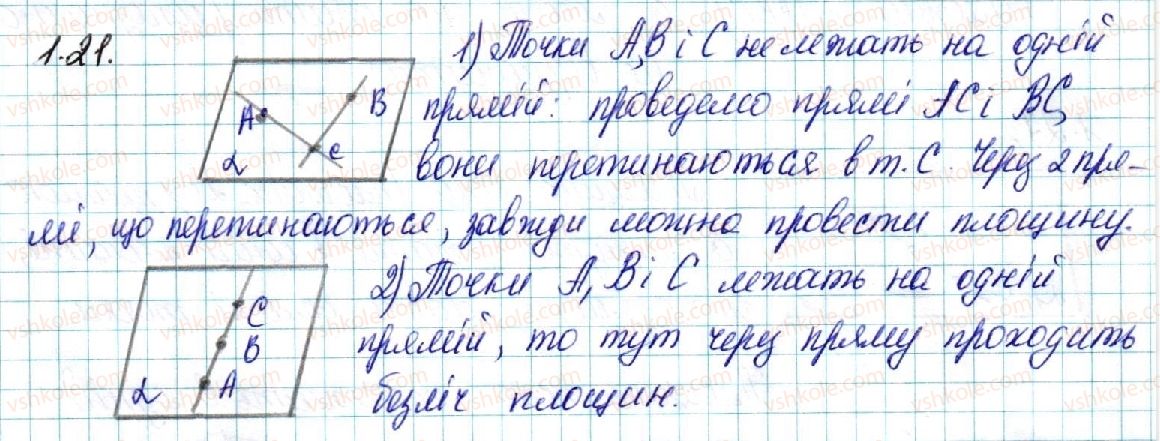 1.21.
1) Точки A,B і C не лежать на одній
прямій: проведемо прямі AC і BC,
вони перетинаються в т. C. Через 2 пря-
мі, що перетинаються, завжди можна провести площину.
A
B
C
α
2) Точки A, B і C лежать на одній
прямій, то тут через пряму проходить
безліч площин.
C
B
A
α
vshkole.com